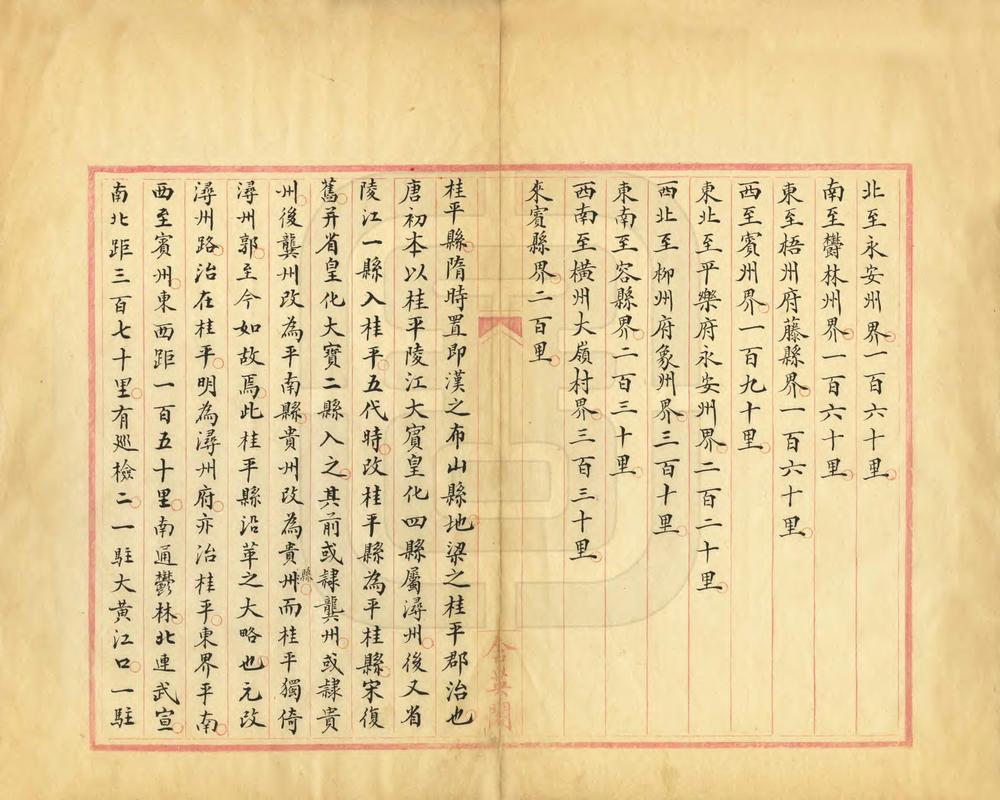 北至永安州界一百六十里
南至鬱林州界一百六十里
東至梧州府藤縣界一百六十里
西至賓州界一百九十里
東北至平樂府永安州界二百二十里
西北至柳州府象州界三百十里
東南至容縣界二百三十里
西南至橫州大嶺村界三百三十里
來賓縣界二百里
桂平縣隋時置即漢之布山縣地梁之桂平郡治也
唐初本以桂平陵江大賓皇化四縣屬潯州後又省
陵江一縣入桂平五代時改桂平縣為平桂縣宋復
舊并省皇化大賓二縣入之其前或隸龔州或隸貴
州後龔州改為平南縣貴州改為貴州縣而桂平獨倚
潯州郭至今如故焉此桂平縣沿革之大略也元改
潯州路治在桂平明為潯州府亦治桂平東界平南
西至賓州東西距一百五十里南通鬱林北連武宣
南北距三百七十里有巡檢二一駐大黃江口一駐
含英閣